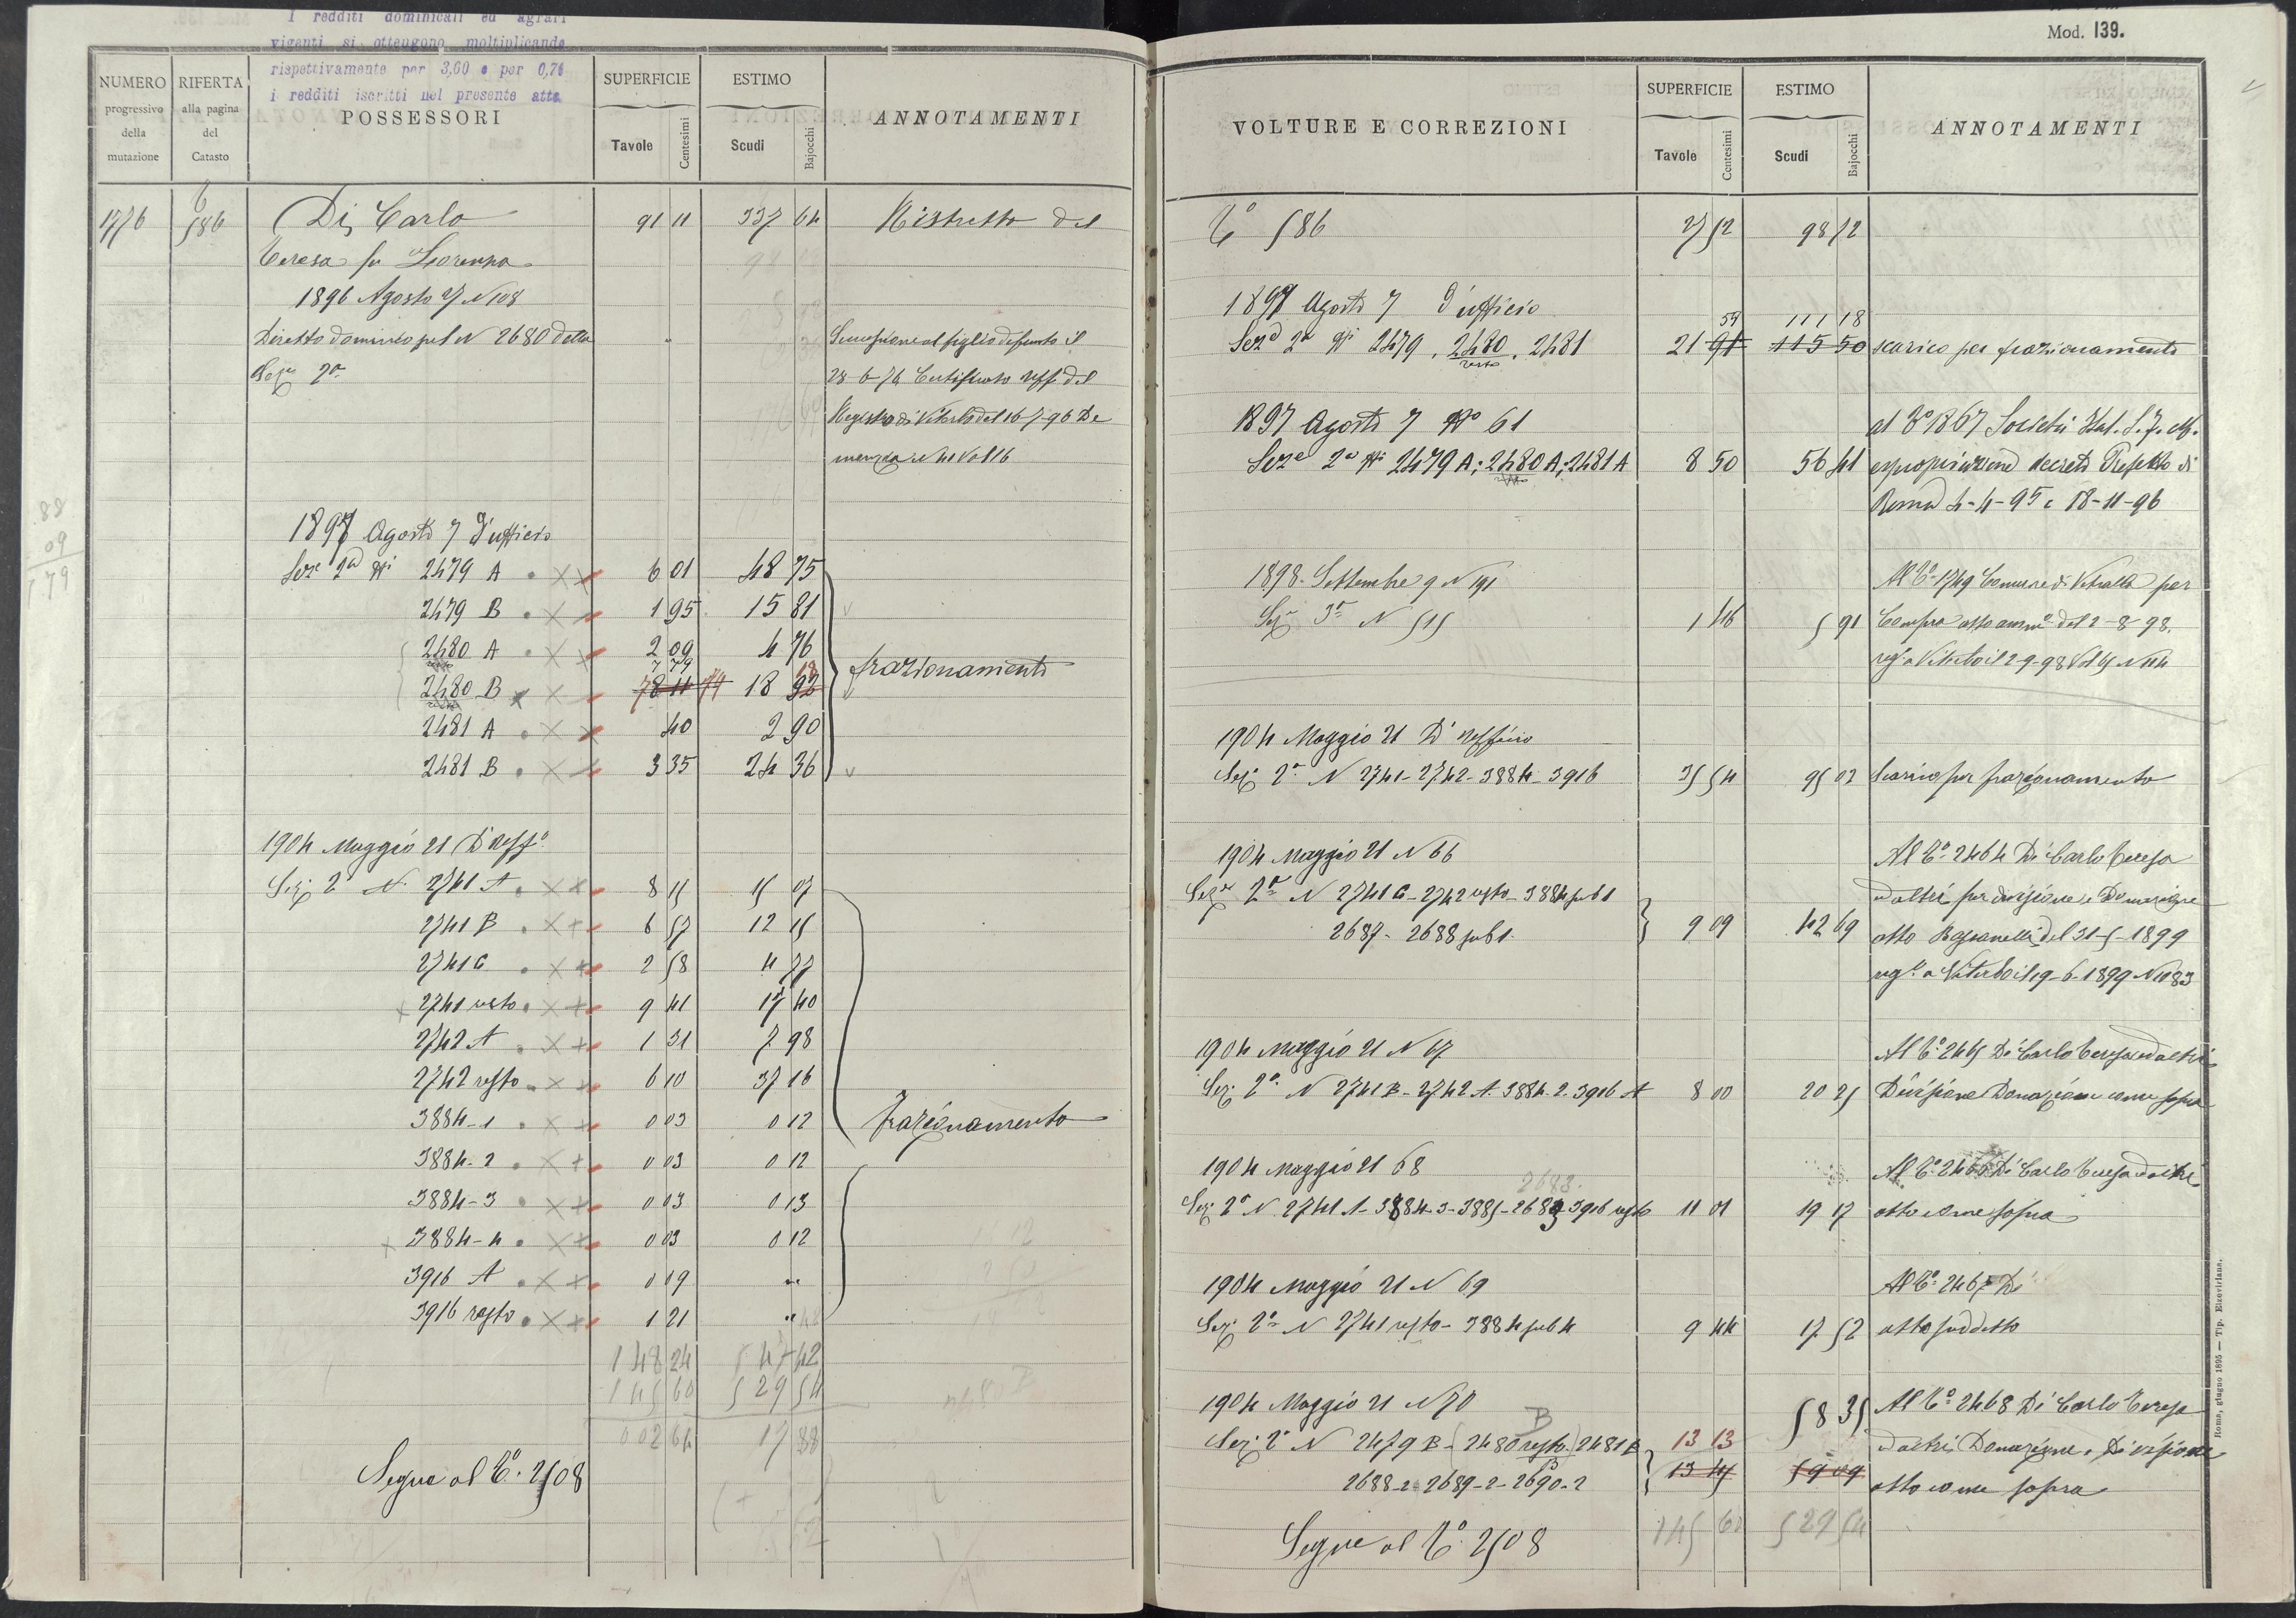 I redditi dominicali ed agrari
vigenti si ottengono moltiplicando
rispettivamente per 3,60 e per 0,76
i redditi iscritti nel presente atto
NUMERO progressivo della mutazione
RIFERTA alla pagina del Catasto
POSSESSORI
SUPERFICIE Tavole Centesimi
ESTIMO Scudi Bajocchi
ANNOTAMENTI
1776 586 Di Carlo 91 11 337 64 Ristretto del
Teresa fu Lorenzo
1896 Agosto 27 N 108
Diretto dominio pel N 2680 della " Successione al figlio defunto il
Sezne 2a 28-6-76 Certificato uff. del
Registro di Viterbo del 16-7-96 De
88
09
79
1897 Agosto 7 D'ufficio
Seze 2a Ni 2479 A 6 01 48 75
2479 B 1 95 15 81
2480 A 2 09 4 76
resto 7 79 18
2480 B 78 11 79 18 92 frazionamento
2481 A 40 2 90
2481 B 3 35 24 36
1904 Maggio 21 D'Uffo
Sez. 2a N. 2741 A 8 15 15 07
2741 B 6 57 12 15
2741 C 2 58 4 77
2741 resto 9 41 17 40
2742 A 1 31 7 98
2742 resto 6 10 37 16
3884-1 0 03 0 12 frazionamento
3884-2 0 03 0 12
3884-3 0 03 0 13
3884-4 0 03 0 12
3916 A 0 09 "
3916 resto 1 21 "
148 24 547 42
145 60 529 54
002 64 17 88
Segue al To. 2508
Mod. 139.
VOLTURE E CORREZIONI
SUPERFICIE Tavole Centesimi
ESTIMO Scudi Bajocchi
ANNOTAMENTI
To 586 27 52 98 72
1897 Agosto 7 D'ufficio
59 111 18
Seze 2a Ni 2479, 2480, 2481 21 91 115 50 scarico per frazionamento
resto
1897 Agosto 7 No 61 al To 1867 Società Ital. S. F. M.
Seze 2a Ni 2479 A; 2480 A; 2481 A 8 50 56 41 espropriazione decreti Prefetto di
Roma 4-4-95 e 18-11-96
1898. Settembre 9 N 191 Al To 1749 Comune di Vetralla per
Sez. 3a N 515 1 46 5 91 Compra atto ammo del 2-8-98.
rego a Viterbo il 2-9-98 Vol 45 N 114
1904 Maggio 21 D'Ufficio
Sez. 2a N 2741-2742-3884-3916 35 54 95 02 Scarico per frazionamento
1904 Maggio 21 N 66 Al To 2464 Di Carlo Teresa
Sez. 2a N 2741 C-2742 resto-3884 sub 1 ed altri per divisione e Donazione
2687-2688 sub 1. 9 09 42 69 atto del 31-5-1899
rego a Viterbo il 19-6-1899 N 1183
1904 Maggio 21 N 67 Al To 2465 Di Carlo Teresa ed altri
Sez. 2a N 2741 B-2742 A-3884-2-3916 A 8 00 20 25 Divisione Donazione come sopra
1904 Maggio 21 68 Al To 2466 Di Carlo Teresa ed altri
2688.
Sez. 2a N 2741 A-3884-3-3885-2689-3916 resto 11 01 19 17 atto come sopra
1904 Maggio 21 N 69 Al To 2467 Di
Sez. 2a N 2741 resto-3884 sub 4 9 44 17 52 atto suddetto
1904 Maggio 21 N 70 58 35 Al To 2468 Di Carlo Teresa
B
Sez. 2a N 2479 B-(2480 resto) 2481 B 13 13 ed altri Donazione e Divisione
2688-2-2689-2-2690-2 13 45 59 09 atto come sopra
Segue al To. 2508 145 60 529 54
Roma, giugno 1895 — Tip. Elzeviriana.